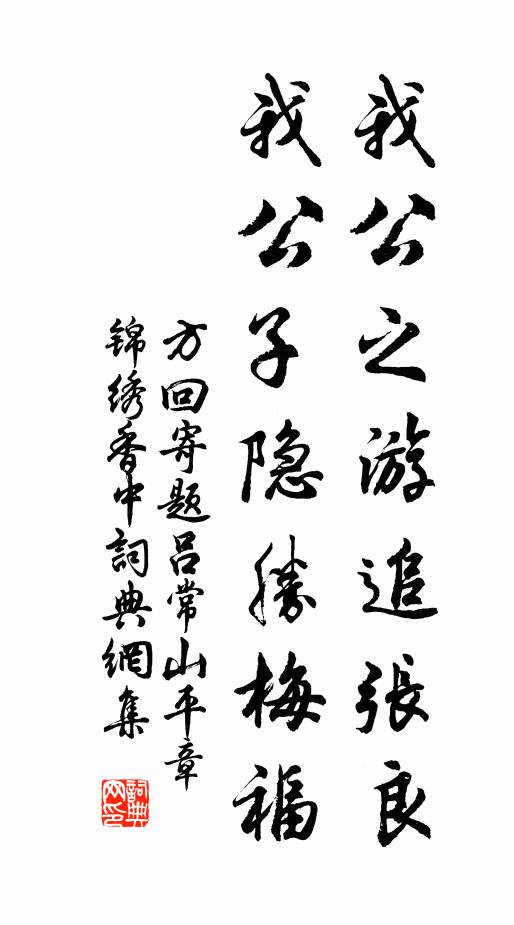 我公之游追張良
我公子隐勝梅福
方回寄题吕常山平章
锦绣香中詞典網集
詞典网印